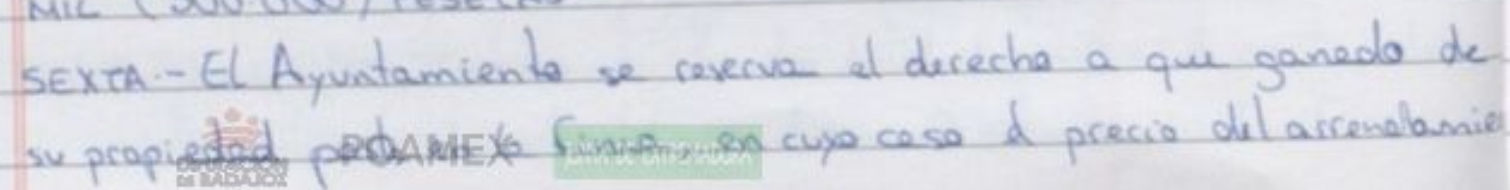 MIL (500.000) PESETAS
SEXTA.- El Ayuntamiento se reserva el derecho a que ganado de
su propiedad finca, en cuyo caso el precio del arrendamie